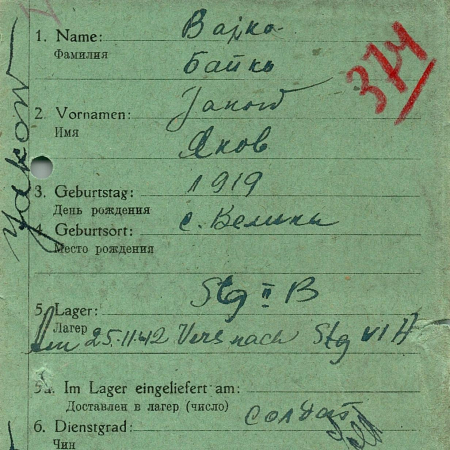 1. Name: Bajko
Фамилия Байко
374
2. Vornamen: Jakow
Имя Яков
Jakow
3. Geburtstag: 1919
День рождения
4. Geburtsort: с. Велики
Место рождения
5. Lager: Stg II B
Лагер
25.11.42 Vers nach Stg VI A
5a. Im Lager eingeliefert am:
Доставлен в лагер (число)
6. Dienstgrad: солдат
Чин Sold